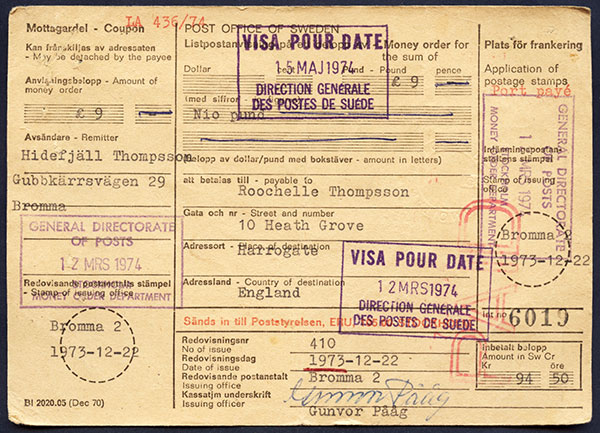 IA 436/74
Mottagardel - Coupon
Kan frånskiljas av adressaten
- May be detached by the payee
Anvisningsbelopp - Amount of
money order
£ 9
Avsändare - Remitter
Hidefjäll Thompsson
Gubbkärrsvägen 29
Bromma
GENERAL DIRECTORATE
OF POSTS
12 MRS 1974
STOCKHOLM
MONEY ORDER DEPARTMENT
Redovisande postanstalts stämpel
- Stamp of issuing office
Bromma 2
1973-12-22
BI 2020.05 (Dec 70)
POST OFFICE OF SWEDEN
Listpostanvisning på
Money order for
the sum of
Dollar
cent
Pund - Pound
pence
£ 9
(med siffror
Nio pund
VISA POUR DATE
15 MAJ 1974
DIRECTION GÉNÉRALE
DES POSTES DE SUÈDE
(belopp av dollar/pund med bokstäver - amount in letters)
att betalas till - payable to
Roochelle Thompsson
Gata och nr - Street and number
10 Heath Grove
Adressort - Place of destination
Harrogate
Adressland - Country of destination
England
VISA POUR DATE
12 MRS 1974
DIRECTION GÉNÉRALE
DES POSTES DE SUÈDE
Sänds in till Poststyrelsen,
Redovisningsnr
No of issue
410
Redovisningsdag
Date of issue
1973-12-22
Redovisande postanstalt
Issuing office
Bromma 2
Kassatjm underskrift
Issuing officer
Gunvor Pååg
Gunvor Pååg
Plats för frankering
Application of
postage stamps
Port payé
GENERAL DIRECTORATE
OF POSTS
1974
STOCKHOLM
MONEY ORDER DEPARTMENT
stämpel
Stamp of issuing
office
Bromma 2
1973-12-22
Int nr
6019
Inbetalt belopp
Amount in Sw Cr
Kr
öre
94
50